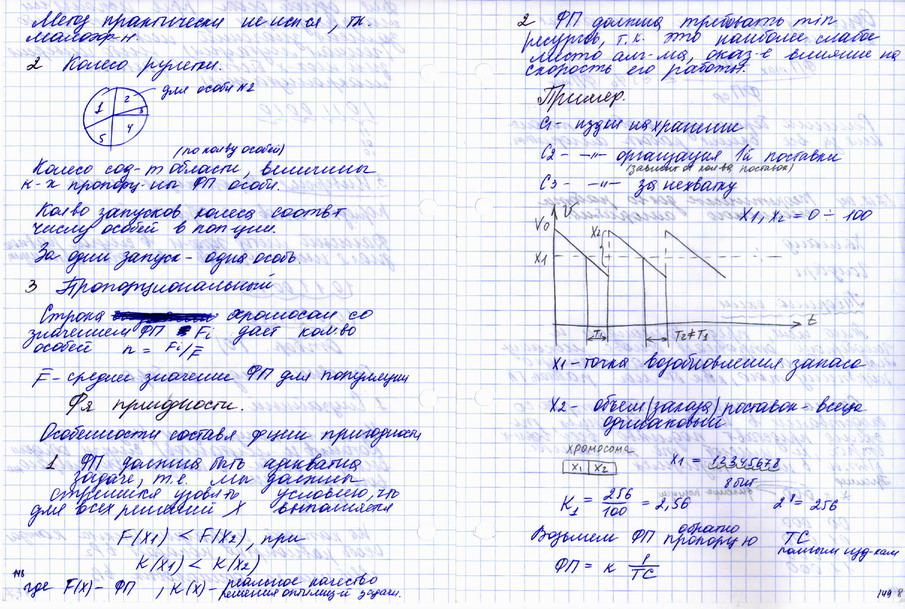 Метод практически не испол, т.к.
малоэф-н.
2 Колесо рулетки.
для особи №2
1 2 3 4 5
(по кол-ву особей)
Колесо сод-т области, величины
к-х пропорц-ны ФП особи.
Кол-во запусков колеса соотв-т
числу особей в поп-ции.
За один запуск - одна особь
3 Пропорциональный
Строка хромосом со
значением ФП Fi дает кол-во
особей n = Fi/F̄
F̄ - среднее значение ФП для популяции
Ф-я пригодности.
Особенности составл ф-ции пригодности
1 ФП должна быть адекватна
задаче, т.е. мы должны
стремиться удовл условию, что
для всех решений X выполняется
F(X1) < F(X2), при
K(X1) < K(X2)
где F(X) - ФП, K(X) - реальное качество
решения оптимиз-й задачи.
148
2 ФП должна требовать min
ресурсов, т.к. это наиболее слабое
место алг-ма, оказ-е влияние на
скорость его работы.
Пример.
C1 - издки на хранение
C2 - -"- организация 1й поставки
(зависит от кол-ва поставок)
C3 - -"- за нехватку
X1, X2 = 0 ÷ 100
V0 V
X2
X1
T1 T2≠T1 t
X1 - точка возобновления запаса
X2 - объем (заказа) поставок - всегда
одинаковый
хромосома
X1 X2
X1 = 12345678
8 бит
K1 = 256/100 = 2,56 2^8 = 256
Возьмем ФП обратно пропорц-ю TC
полным изд-кам
ФП = K 1/TC
149